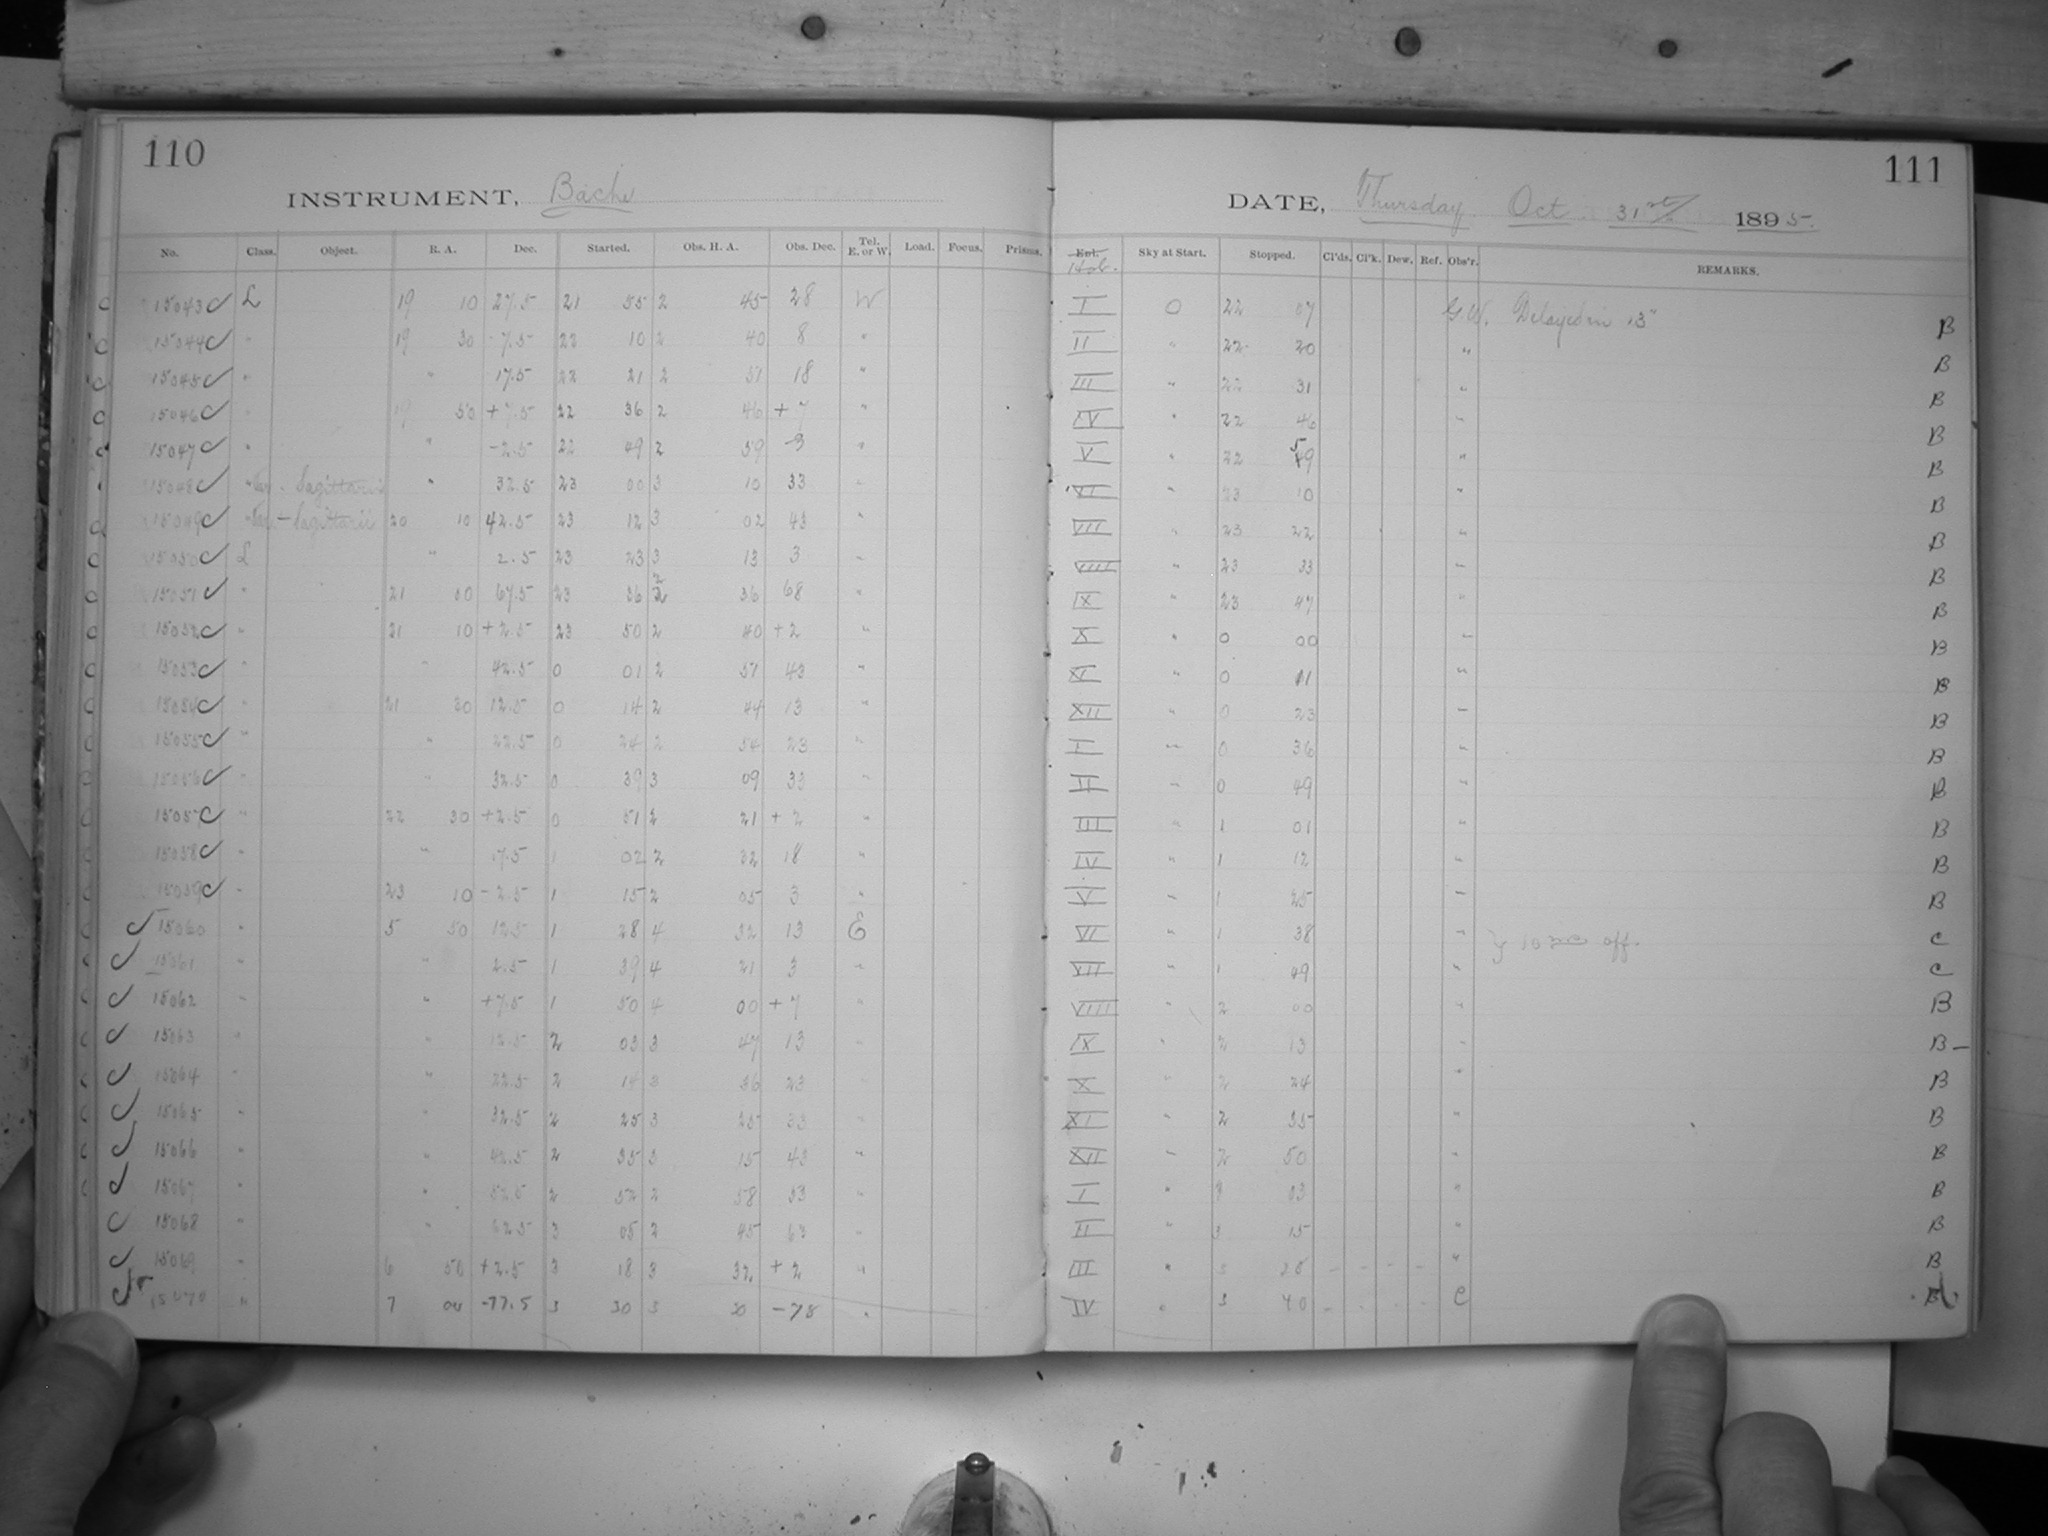 110
INSTRUMENT, Bache
No. Class. Object. R. A. Dec. Started. Obs. H. A. Obs. Dec. Tel. E. or W. Load. Focus. Prisms.
15043 L 19 10 27.5 21 55 2 45 28 W
15044 " 19 30 -7.5 22 10 2 40 8 "
15045 " " 17.5 22 21 2 51 18 "
15046 " 19 50 +7.5 22 36 2 46 +7 "
15047 " " -2.5 22 49 2 59 -3 "
15048 " Sagittarii " 32.5 23 00 3 10 33 "
15049 " Sagittarii 20 10 42.5 23 12 3 02 43 "
15050 L " 2.5 23 23 3 13 3 "
15051 " 21 00 67.5 23 36 2 36 68 "
15052 " 21 10 +2.5 23 50 2 40 +2 "
15053 " " 42.5 0 01 2 51 43 "
15054 " 21 30 12.5 0 14 2 44 13 "
15055 " " 22.5 0 24 2 54 23 "
15056 " " 32.5 0 39 3 09 33 "
15057 " 22 30 +2.5 0 51 2 21 +2 "
15058 " " 17.5 1 02 2 32 18 "
15059 " 23 10 -2.5 1 15 2 05 3 "
15060 " 5 50 12.5 1 28 4 22 13 E
15061 " " 2.5 1 39 4 21 3 "
15062 " " +7.5 1 50 4 00 +7 "
15063 " " 12.5 2 03 3 47 13
15064 " " 22.5 2 14 3 36 23
15065 " " 32.5 2 25 3 25 33
15066 " " 42.5 2 35 3 15 43 "
15067 " " 52.5 2 52 2 58 53 "
15068 " " 62.5 3 05 2 45 63 "
15069 " 6 50 +2.5 3 18 3 32 +2 "
15070 " 7 00 -77.5 3 30 3 30 -78 "
111
DATE, Thursday Oct 31st 1895.
Ent. Hol. Sky at Start. Stopped. Cl'ds. Cl'k. Dew. Ref. Obs'r. REMARKS.
I 0 22 07 G.W. Delayed in 13" B
II " 22 20 " B
III " 22 31 " B
IV " 22 46 " B
V " 22 59 " B
VI " 23 10 " B
VII " 23 22 " B
VIII " 23 33 " B
IX " 23 47 " B
X " 0 00 " B
XI " 0 11 " B
XII " 0 23 " B
I " 0 36 " B
II " 0 49 " B
III " 1 01 " B
IV " 1 12 " B
V " 1 25 " B
VI " 1 38 " off. C
VII " 1 49 " C
VIII " 2 00 " B
IX " 2 13 " B
X " 2 24 " B
XI " 2 35 " B
XII " 2 50 " B
I " 3 03 " B
II " 3 15 " B
III " 3 28 " B
IV " 3 40 C